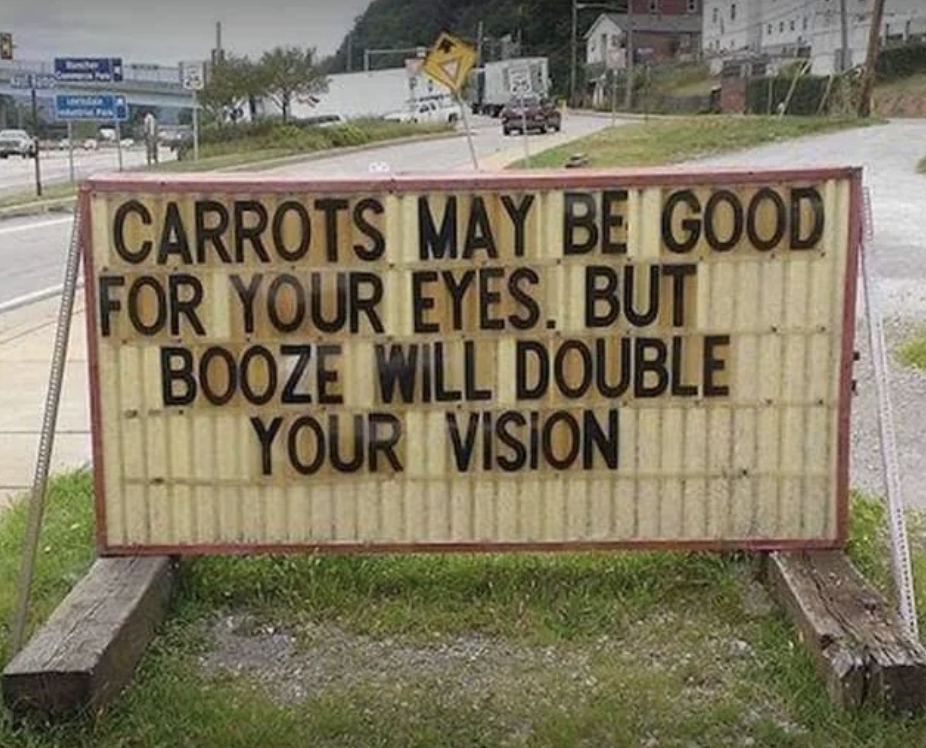 CARROTS MAY BE GOOD
FOR YOUR EYES. BUT
BOOZE WILL DOUBLE
YOUR VISION
Buncher
Commerce Park
Leetsdale
Industrial Park
25